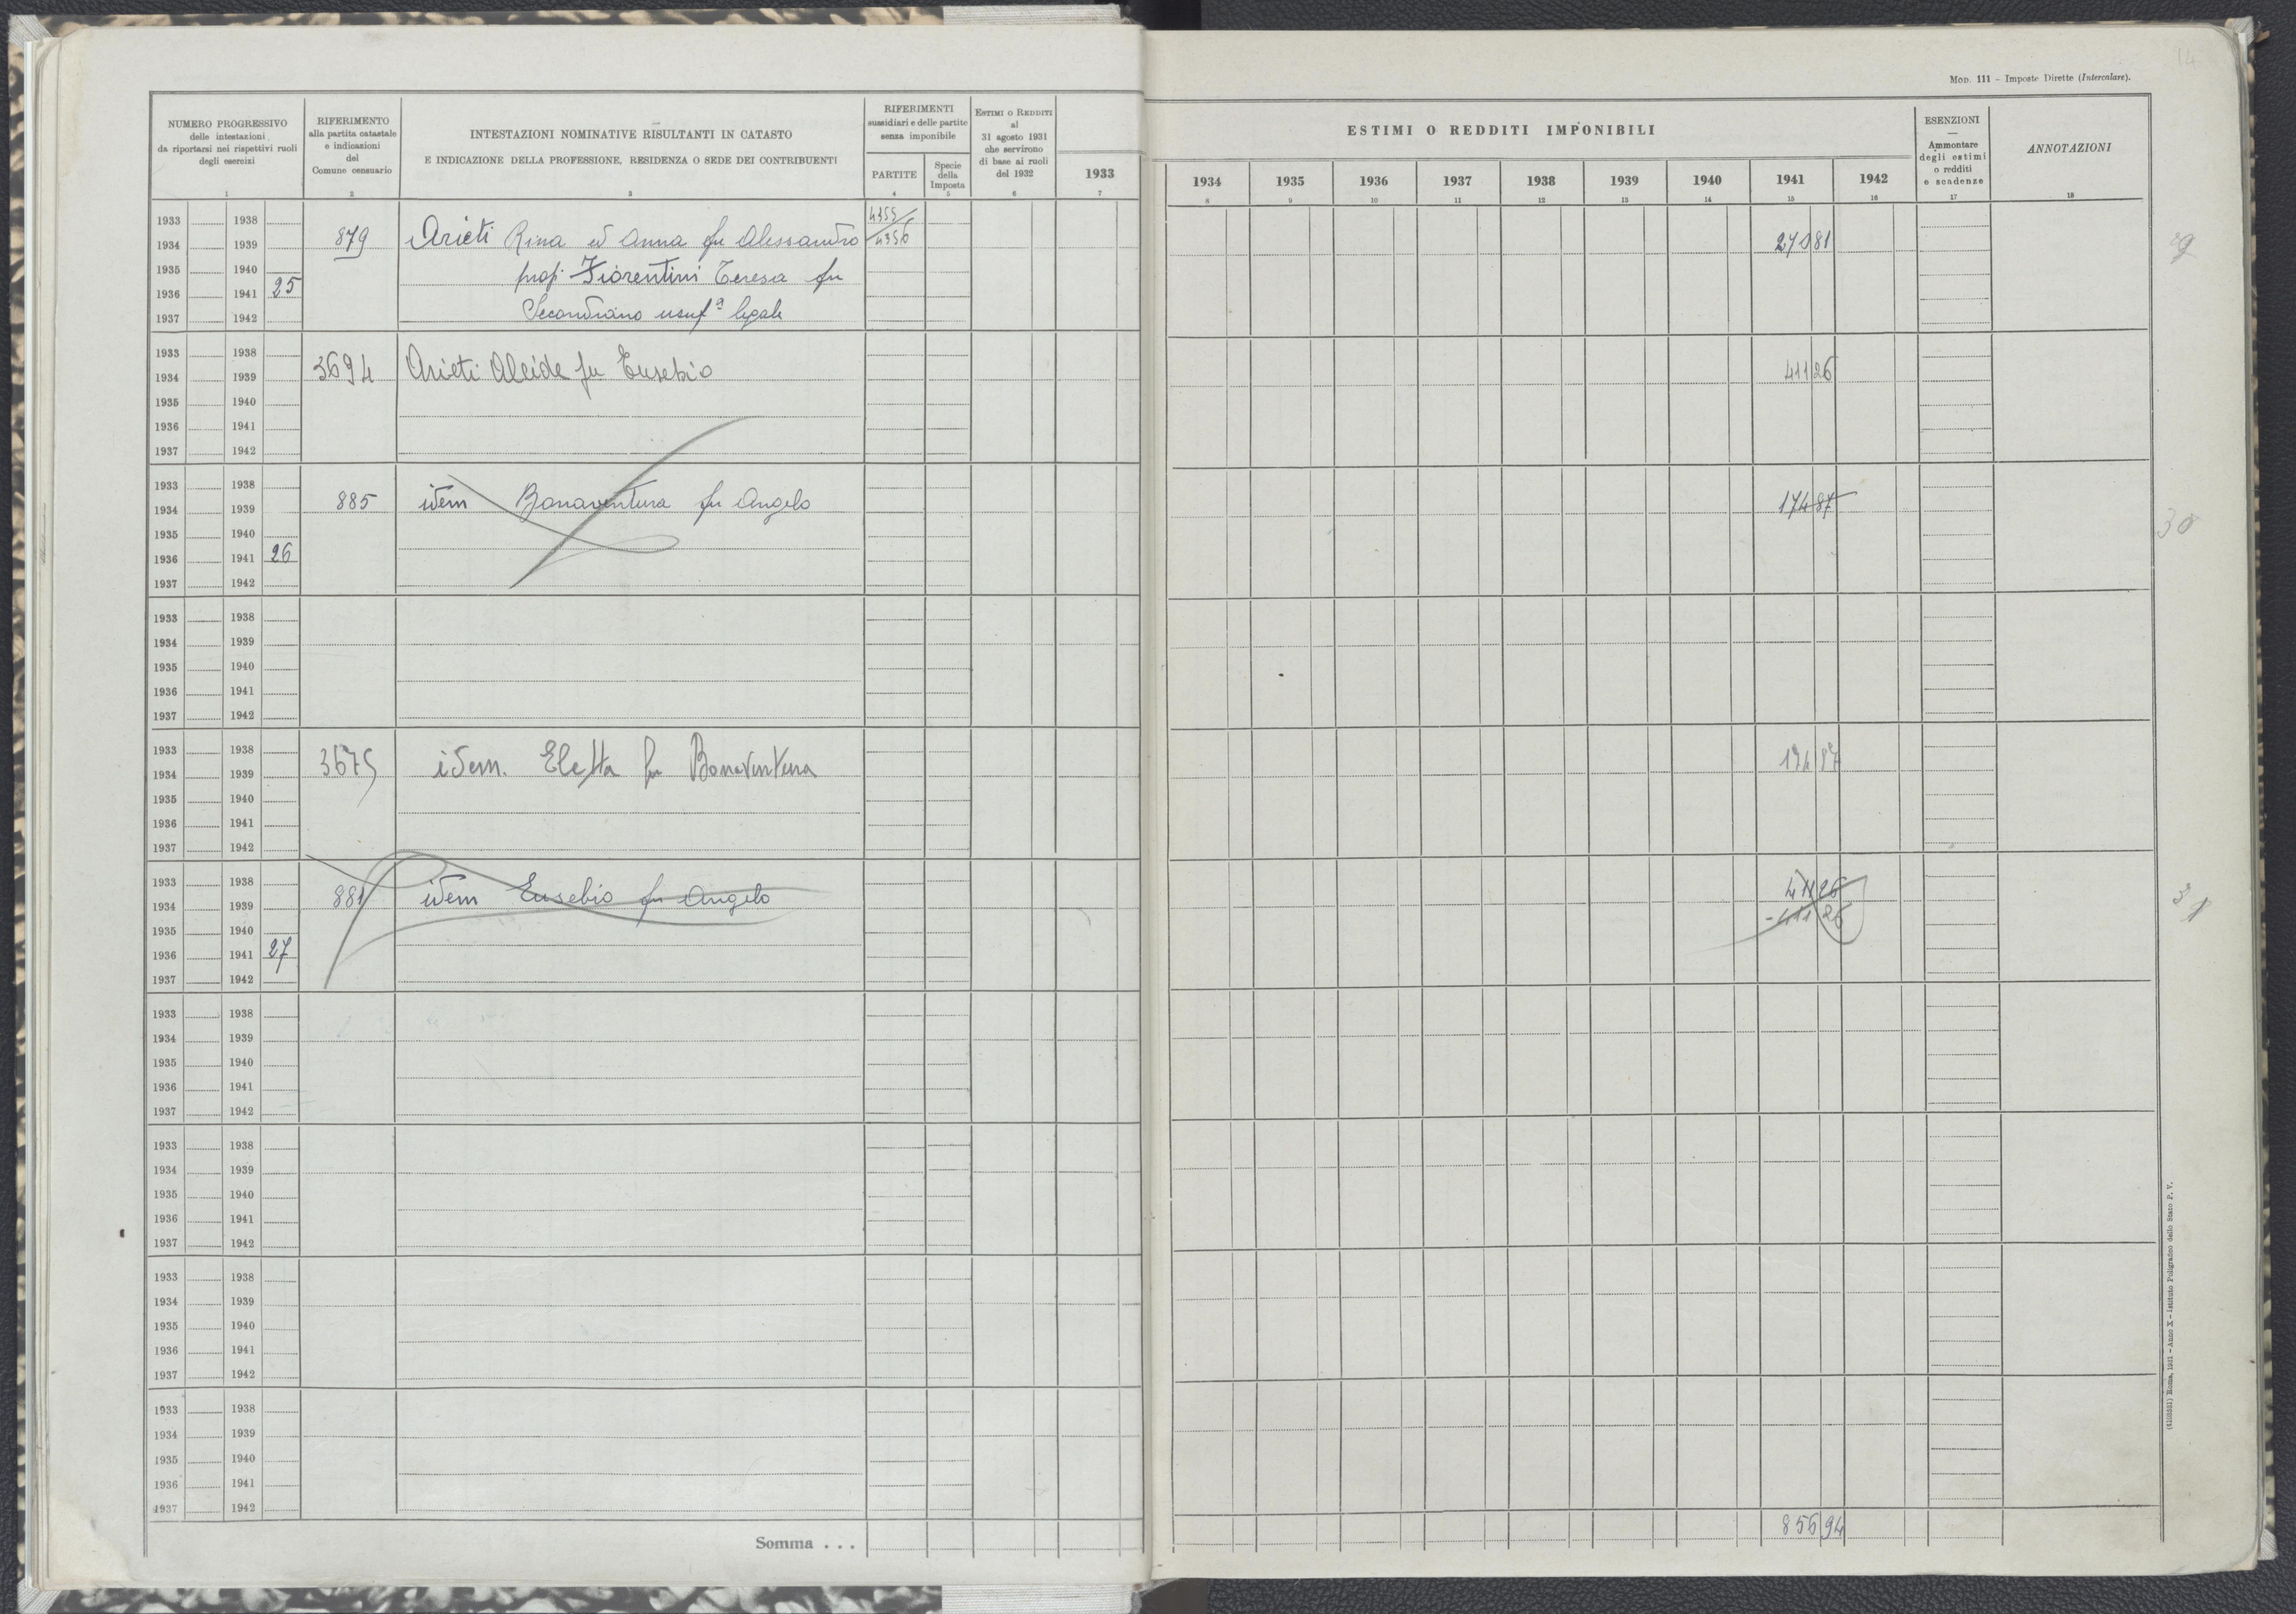 14
MOD. 111 - Imposte Dirette (Intercalare).
NUMERO PROGRESSIVO
delle intestazioni
da riportarsi nei rispettivi ruoli
degli esercizi
1
RIFERIMENTO
alla partita catastale
e indicazioni
del
Comune censuario
2
INTESTAZIONI NOMINATIVE RISULTANTI IN CATASTO
E INDICAZIONE DELLA PROFESSIONE, RESIDENZA O SEDE DEI CONTRIBUENTI
3
RIFERIMENTI
sussidiari e delle partite
senza imponibile
PARTITE
4
Specie
della
Imposta
5
ESTIMI O REDDITI
al
31 agosto 1931
che servirono
di base ai ruoli
del 1932
6
1933
7
ESTIMI O REDDITI IMPONIBILI
1934 1935 1936 1937 1938 1939 1940 1941 1942
8 9 10 11 12 13 14 15 16
ESENZIONI
Ammontare
degli estimi
o redditi
e scadenze
17
ANNOTAZIONI
18
1933 1938 4355
1934 1939 879 Arieti Rina ed Anna fu Alessandro 4356 270 81
1935 1940 prop. Fiorentini Teresa fu
1936 1941 25
1937 1942 Secondiano usufª legale
1933 1938
1934 1939 3694 Arieti Alcide fu Eusebio 411 26
1935 1940
1936 1941
1937 1942
1933 1938
1934 1939 885 idem Bonaventura fu Angelo 174 87
30
1935 1940
1936 1941 26
1937 1942
1933 1938
1934 1939
1935 1940
1936 1941
1937 1942
1933 1938
1934 1939 3675 idem. Eletta fu Bonaventura 174 87
1935 1940
1936 1941
1937 1942
1933 1938 411 26
1934 1939 881 idem Eusebio fu Angelo - 411 26
31
1935 1940
1936 1941 27
1937 1942
1933 1938
1934 1939
1935 1940
1936 1941
1937 1942
1933 1938
1934 1939
1935 1940
1936 1941
1937 1942
1933 1938
1934 1939
1935 1940
1936 1941
1937 1942
1933 1938
1934 1939
1935 1940
1936 1941
1937 1942
Somma . . . 856 94
Roma, 1931 - Anno X - Istituto Poligrafico dello Stato P. V.